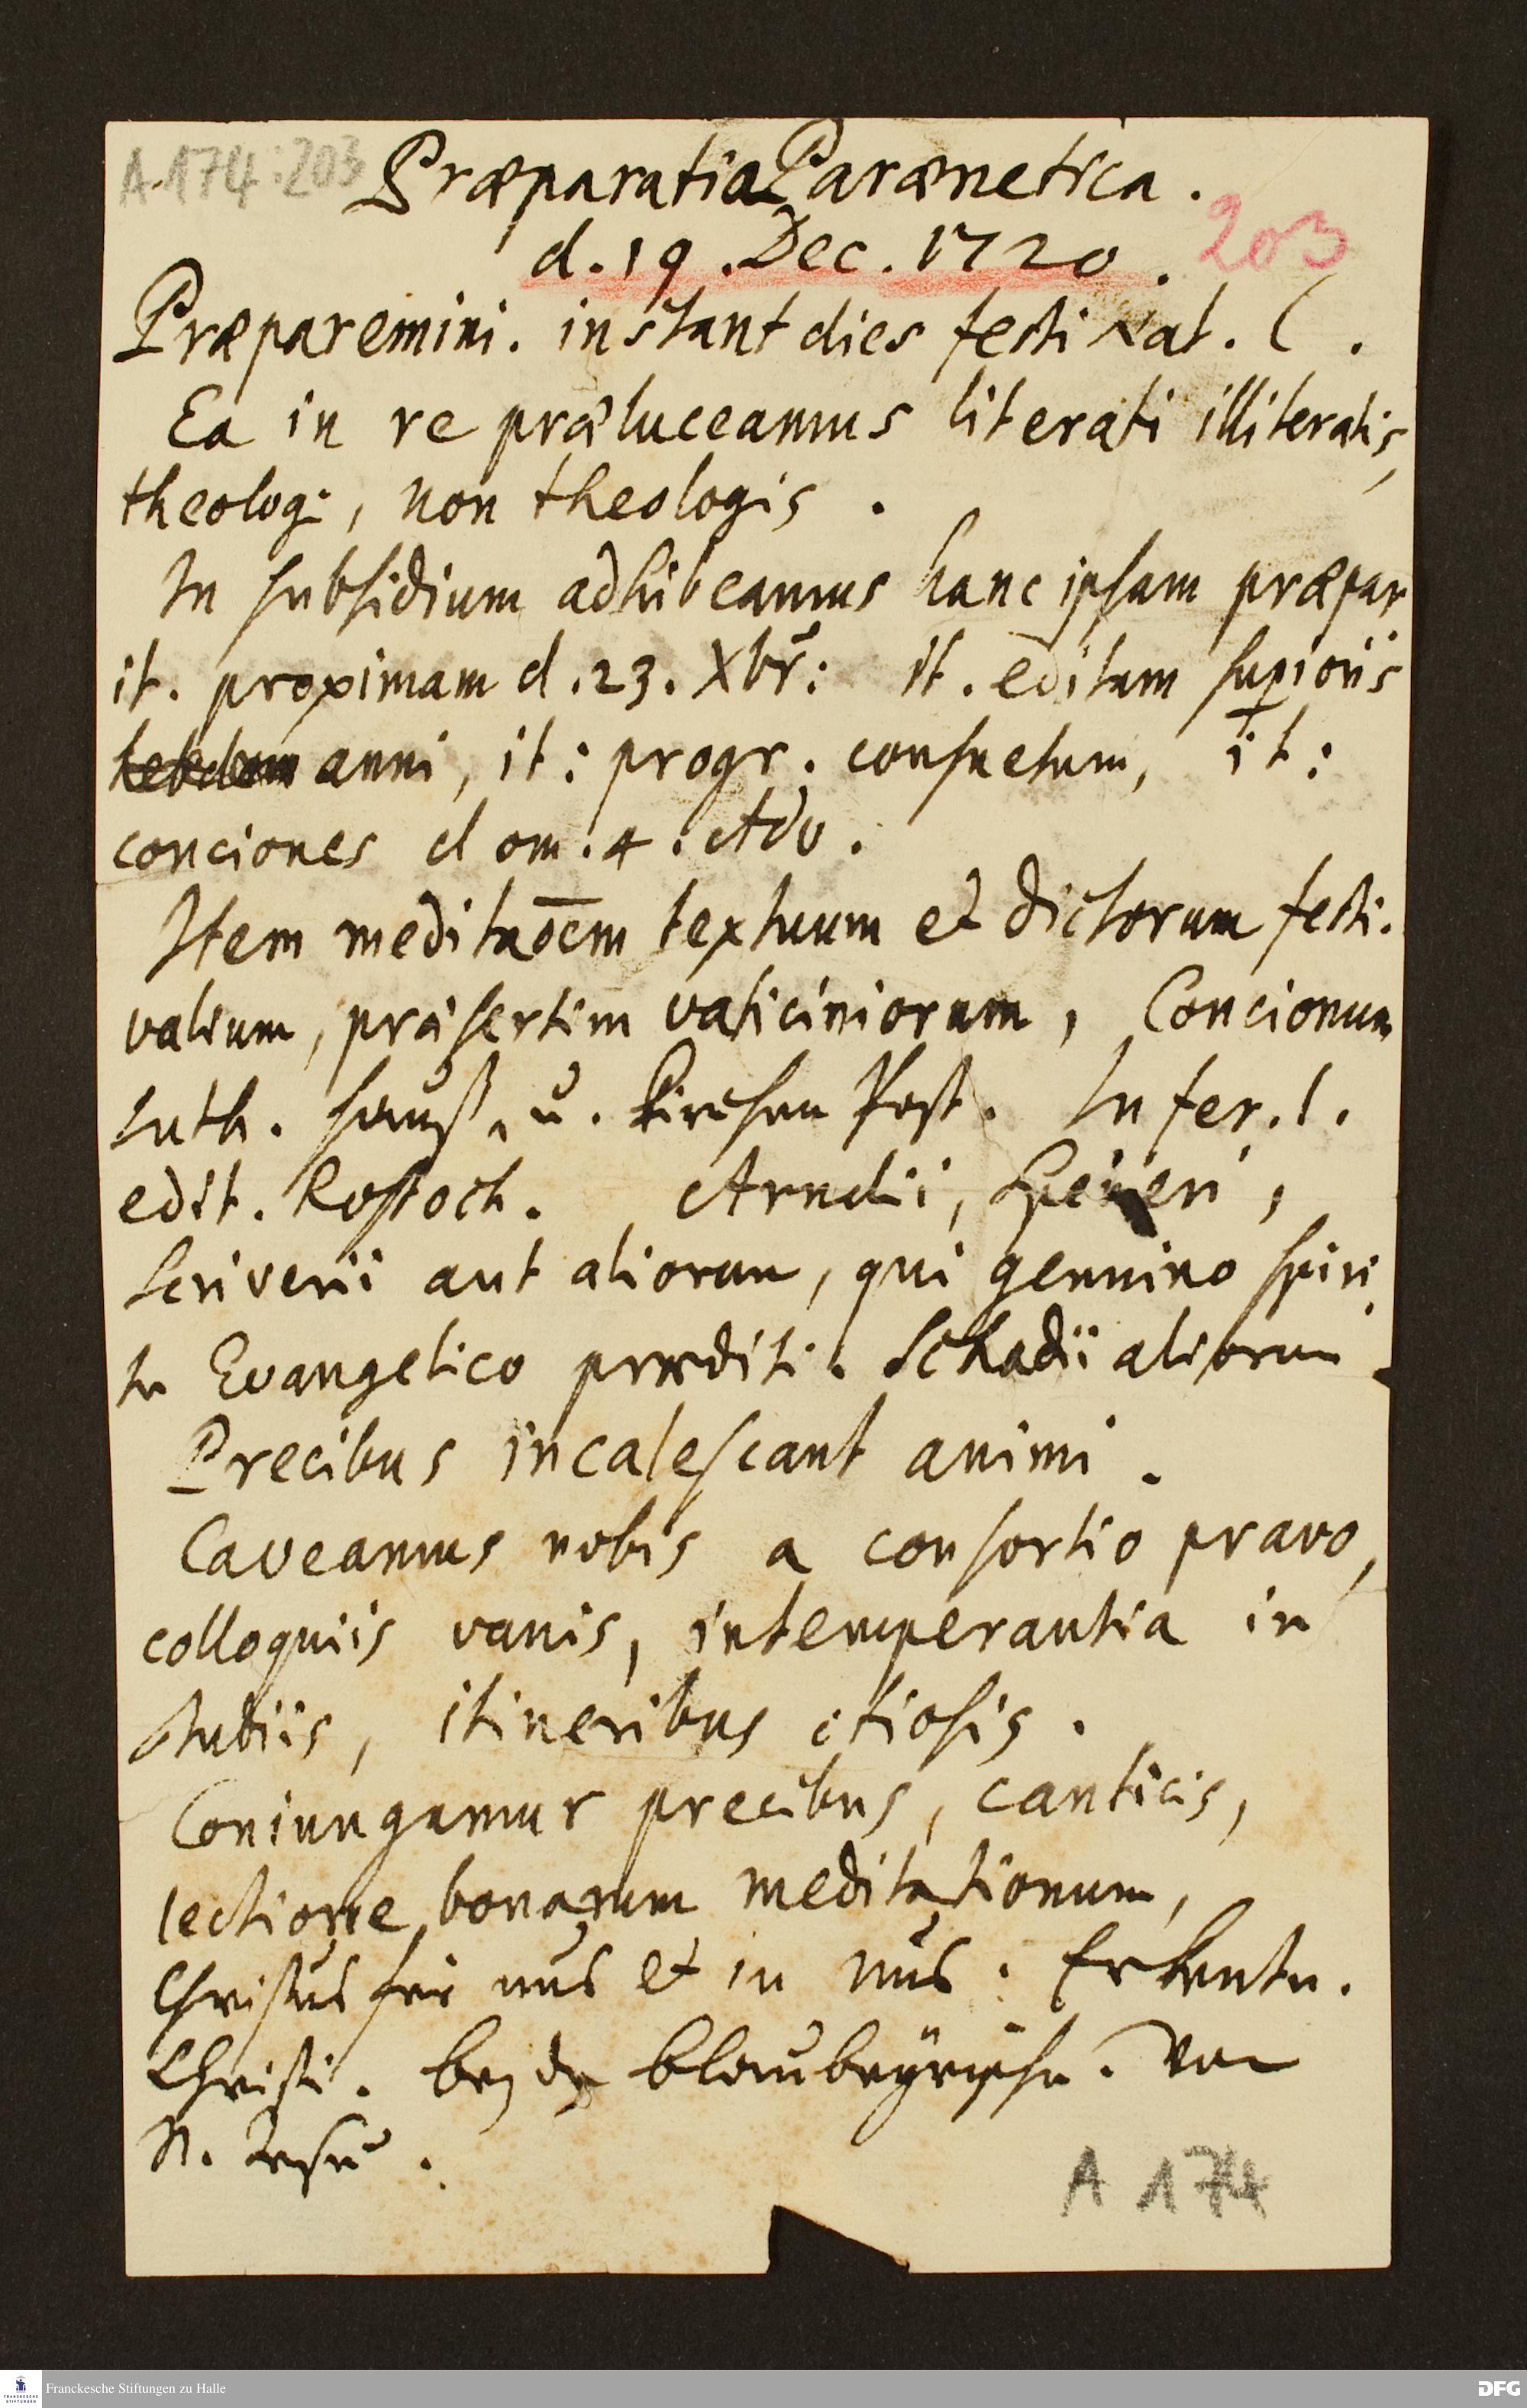 A 174:203
Præparatio Parænetica.
d. 19. Dec. 1720.
203
Præparemini. instant dies festi Nat. C.
Ea in re præluceamus literati illiteratis,
theologi, non theologis.
In subsidium adhibeamus hanc ipsam præpar
it. proximam d. 23. Xbr: it. editam superioris
hebdom anni, it: progr. consuetum, it:
conciones dom. 4. Adv.
Item meditaōem textuum et dictorum festi.
valium, præsertim vaticiniorum, Concionum
Luth. Hauß- u. Kirchen Post. In fer. 1.
edit. Rostoch. Arndii, Speneri,
Scriverii aut aliorum, qui genuino spiri
tu Evangelico præditi. Schadii aliorum
Precibus incalescant animi.
Caveamus nobis a consortio pravo,
colloquiis vanis, intemperantia in
studiis, itineribus otiosis.
Coniungamur precibus, canticis,
lectione bonarum meditationum,
Christus für uns et in uns. Erkentn.
Christi. bey der Von
N. Jesu.
A 174
Franckesche Stiftungen zu Halle
FRANCKESCHE STIFTUNGEN
DFG